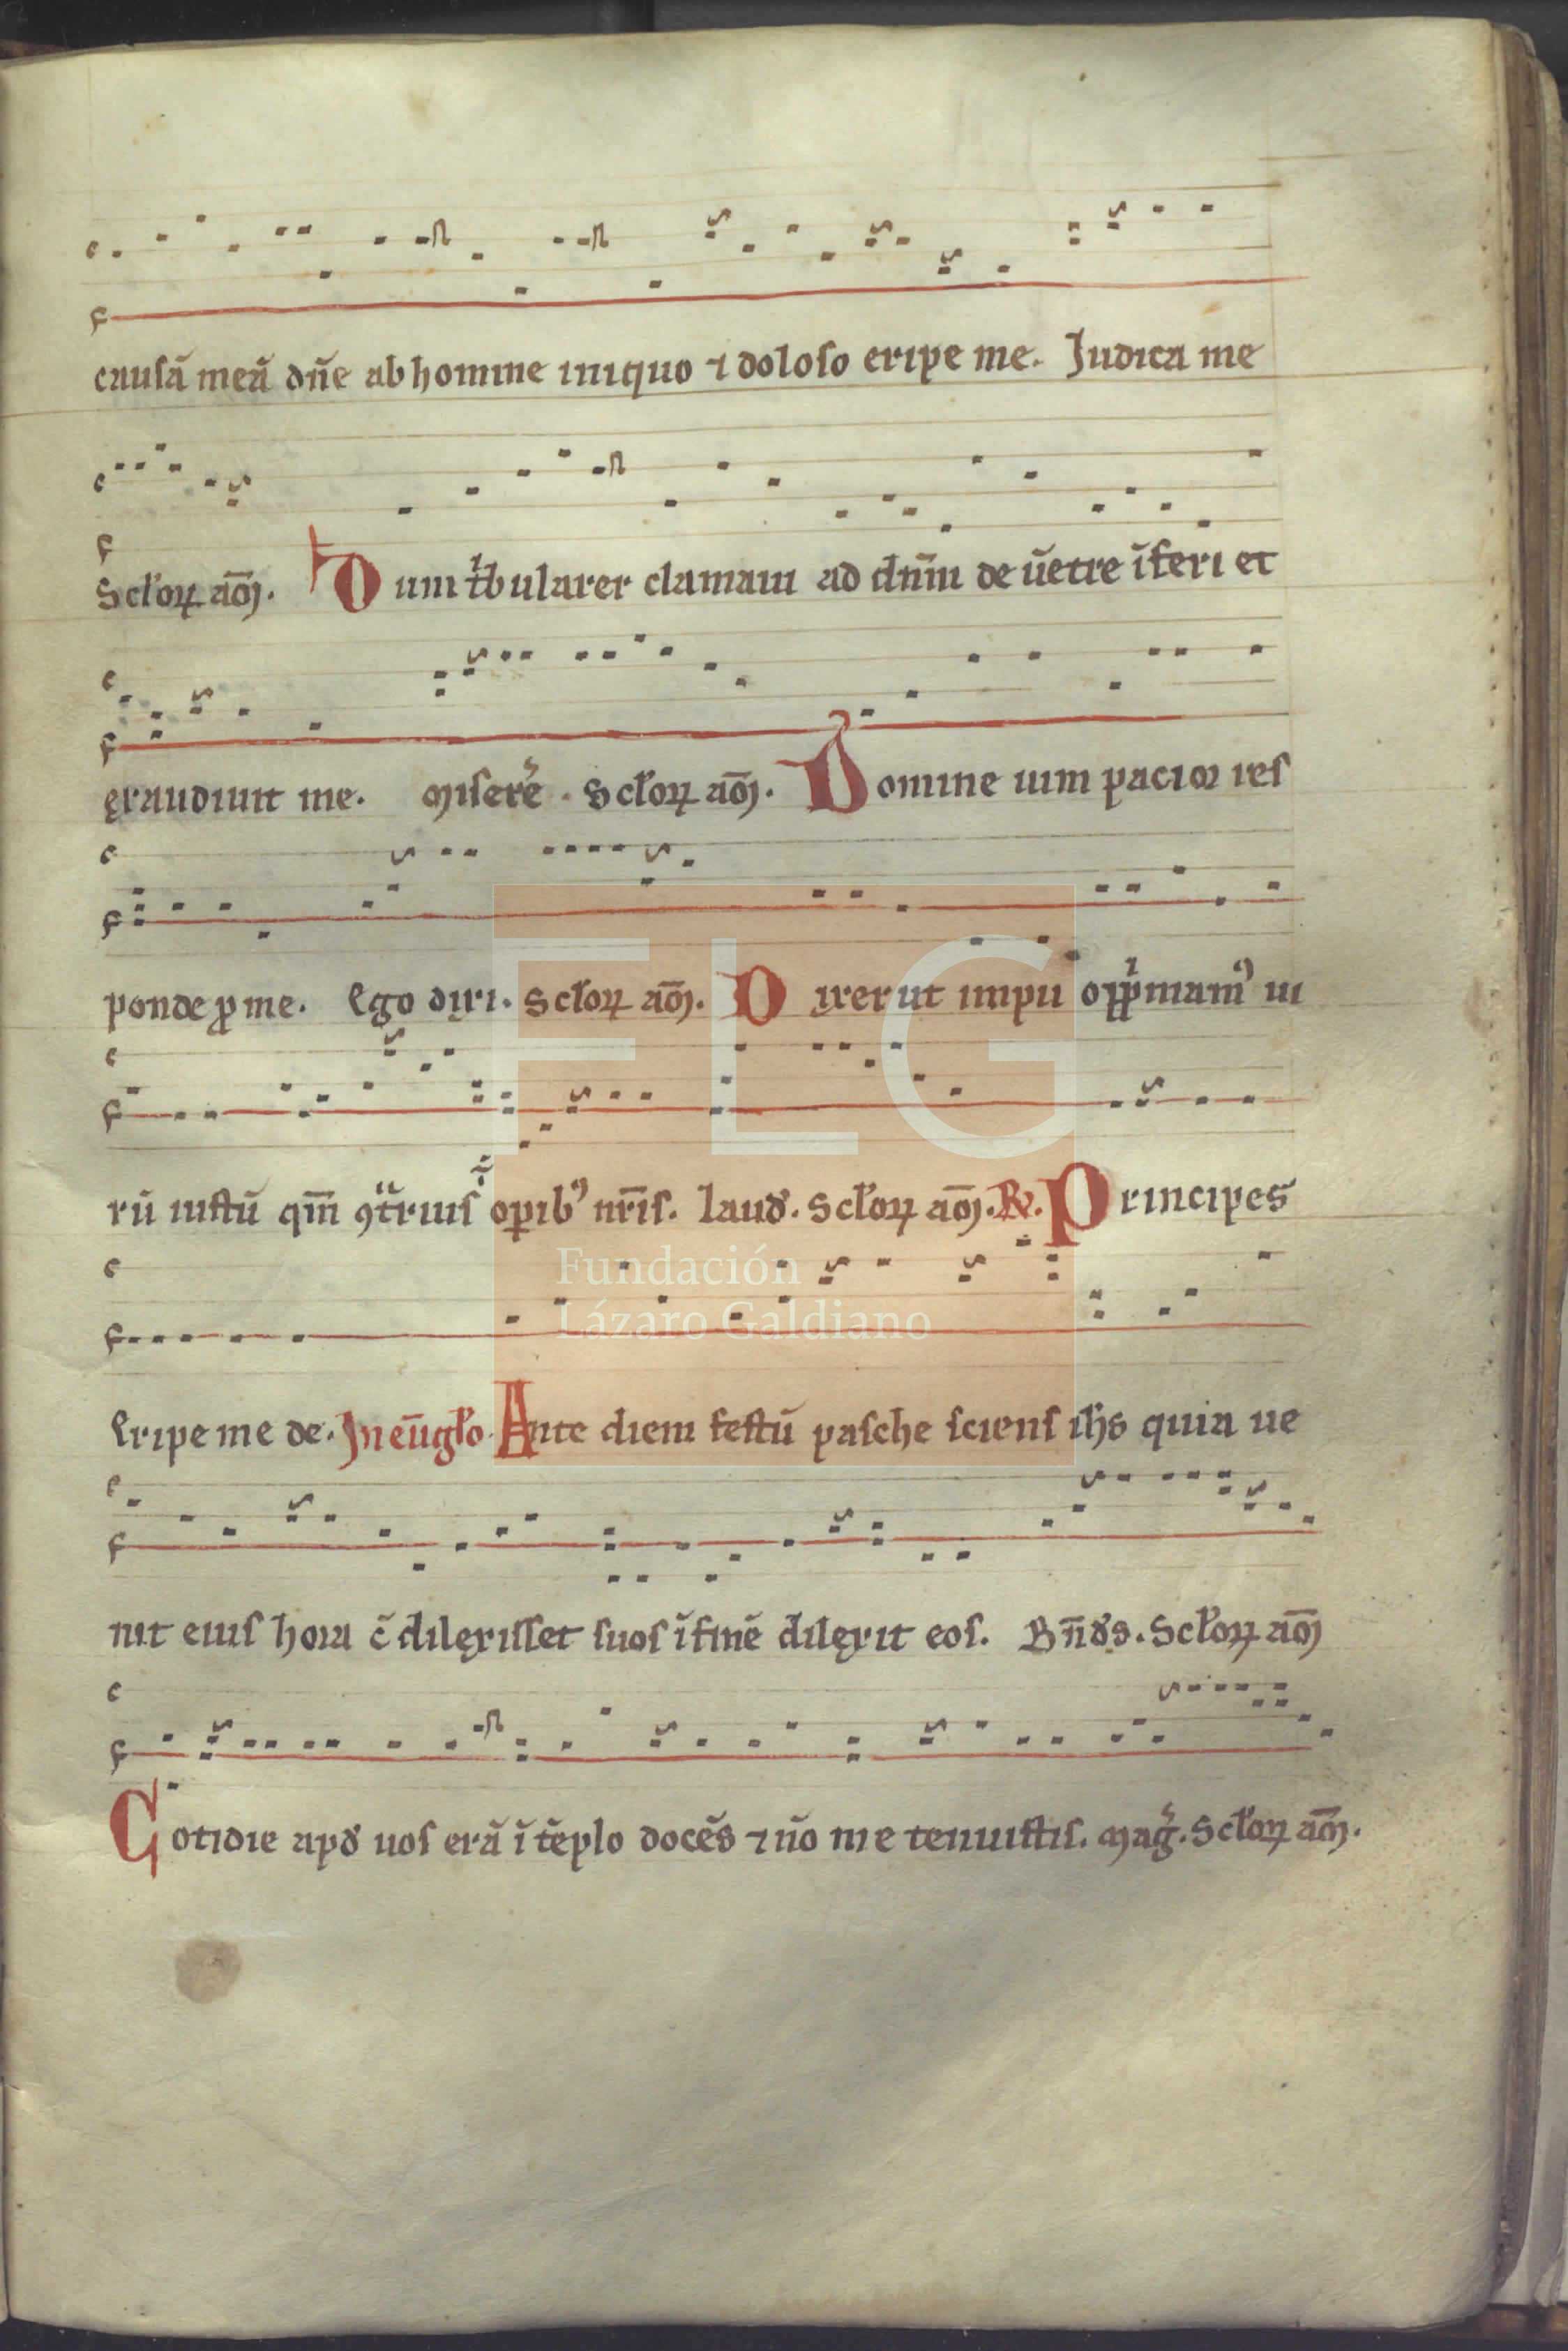 causā meā dn̄e ab homine iniquo ⁊ doloso eripe me. Judica me
Sc̄loꝝ am̄. Dum t̄bularer clamaui ad dn̄m de ūetre īferi et
exaudiuit me. Miserē. Sc̄loꝝ am̄. Domine uim pacior res
ponde ꝓ me. Ego dixi. Sc̄loꝝ am̄. Dixerūt impii opp̄mamꝰ ui
rū iustū qm̄ ꝯt̄rius oꝑibꝰ nr̄is. Laud̄. Sc̄loꝝ am̄. ℟. Principes
Eripe me de. In eūgl̄o. Ante diem festū pasche sciens ih̄s quia ue
nit eius hora c̄ dilexisset suos ī finē dilexit eos. Bn̄ds. Sc̄loꝝ am̄
Cotidie apd̄ uos erā ī tēplo docēs ⁊ nō me tenuistis. Maḡ. Sc̄loꝝ am̄.
FLG
Fundación
Lázaro Galdiano